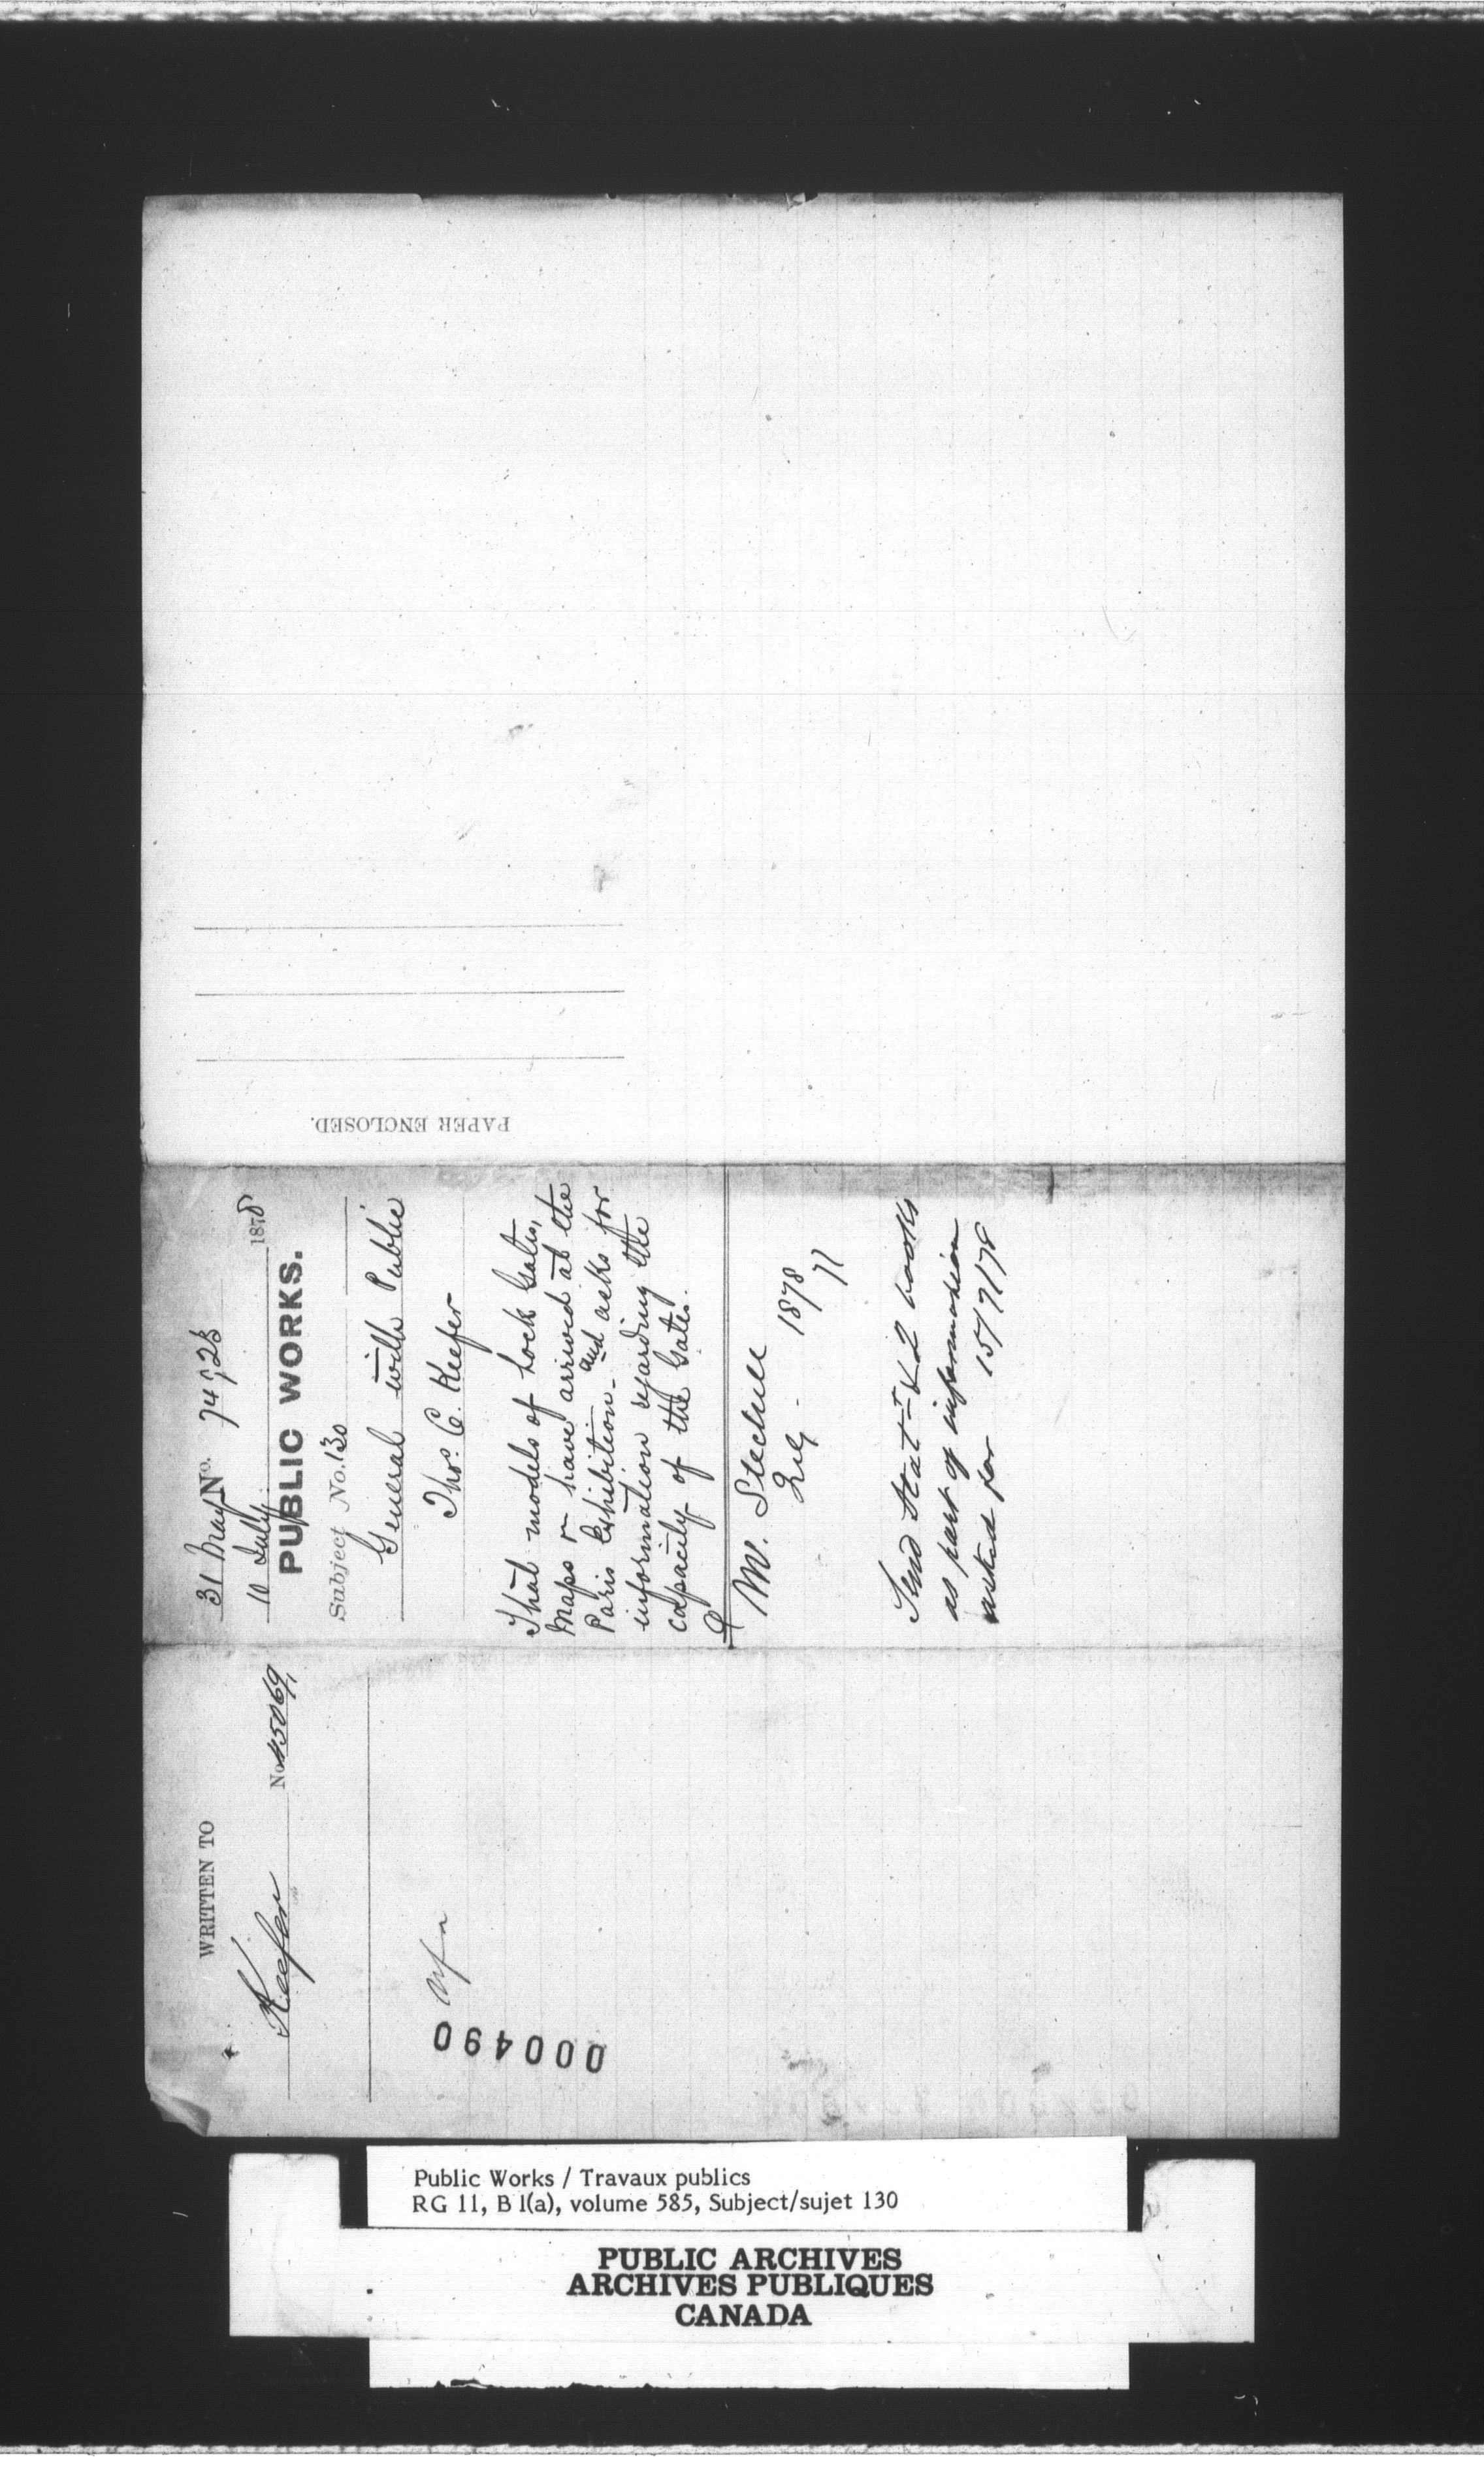 31 May No. 74925
10 July 1878
PUBLIC WORKS.
Subject No. 130
General with Public
Thos. C. Keefer
That models of Lock Gates,
Maps &c have arrived at the
Paris Exhibition - and asks for
information regarding the
capacity of the Gates.
Mr. Steckel
1878
Send Statt & 2 books
as part of information
asked for 15/7/78
WRITTEN TO
Keefer No. 45069
000490
PAPER ENCLOSED.
Public Works / Travaux publics
RG 11, B 1(a), volume 585, Subject/sujet 130
PUBLIC ARCHIVES
ARCHIVES PUBLIQUES
CANADA